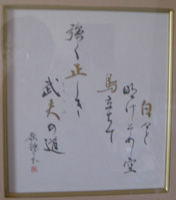 白々と
明けそめ空
馬立ちて
強く正しき
武夫の道